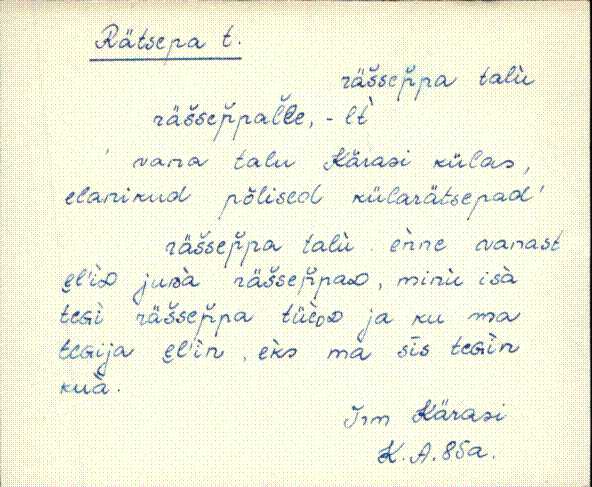 Rätsepa t.
räššep̌pa talù
räššep̌pal̆l̆e, -lt̀
'vana talu Kärasi külas,
elanikud põlised külarätsepad'
räššep̌pa talù . ènne vanast
el'ìD juʙà räššep̌paD, minù isà
teɢì räššep̌pa tüèD ja ku ma
teɢija el'ìn, èks ma sīs teɢìn
kuà.
Irm Kärasi
K. A. 85a.